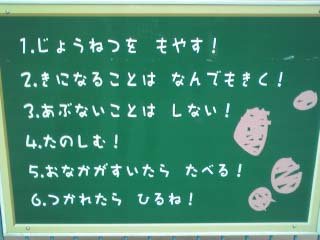 1.じょうねつを もやす!
2.きになることは なんでもきく!
3.あぶないことは しない!
4.たのしむ!
5.おなかがすいたら たべる!
6.つかれたら ひるね!